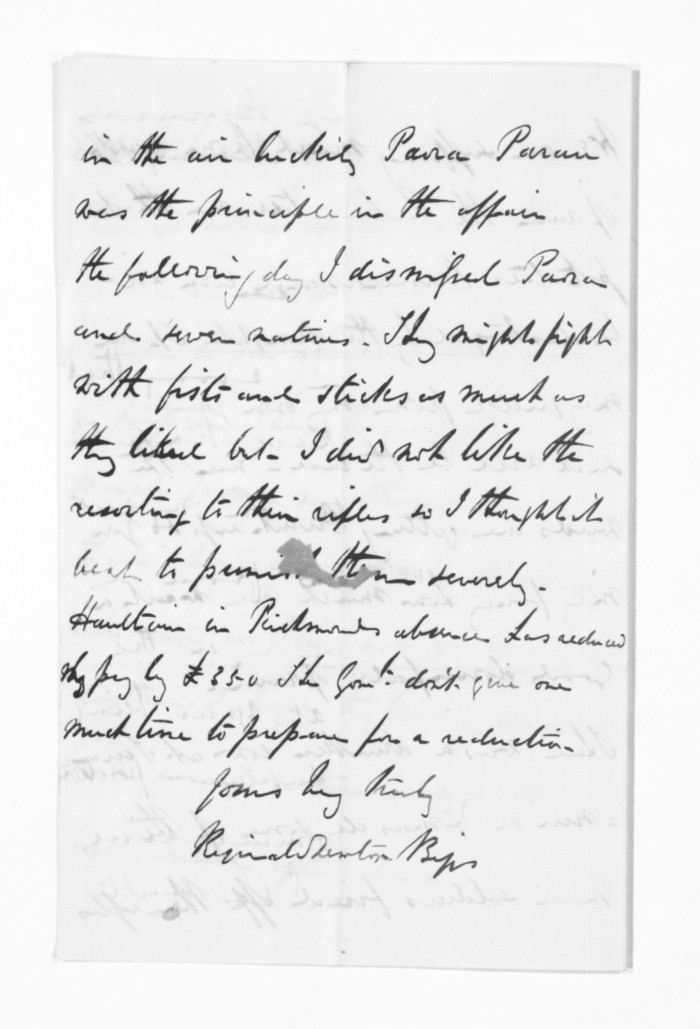 in the air luckily Paora Parau
was the principle in the affair
the following day I dismissed Paora
and seven natives. They might fight
with fists and sticks as much as
they liked but I did not like the
resorting to their rifles so I thought it
best to punish them severely.
Haultain in Richmonds absence has reduced
my pay by £350 The Govt. dont give one
much time to prepare for a reduction
Yours very truly
Reginald Newton Biggs